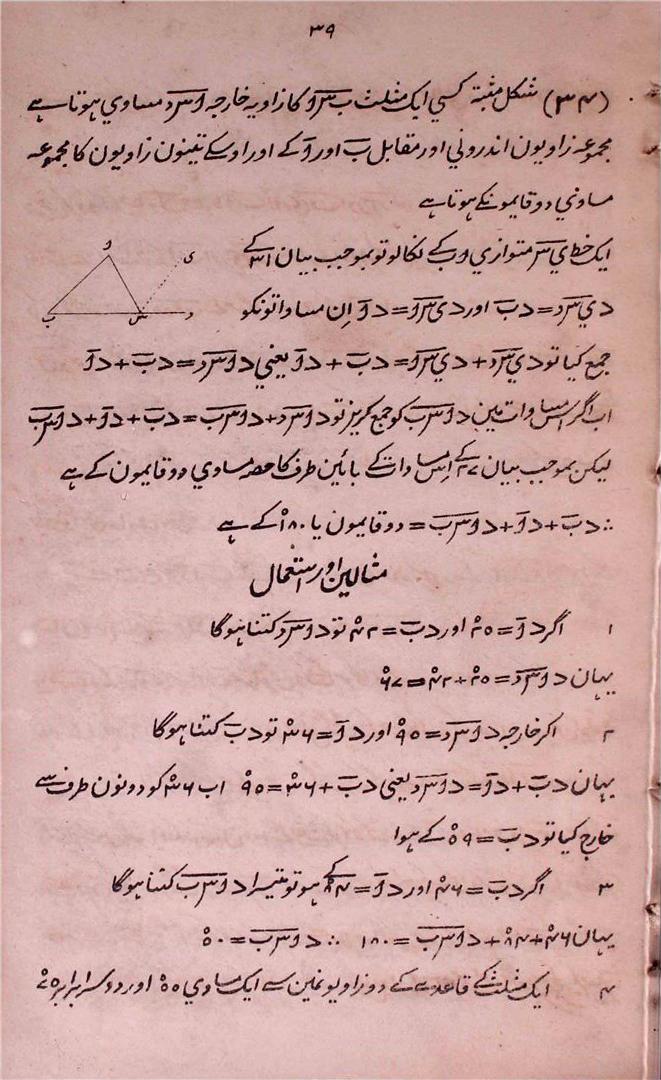 ۳۹
(۳۴) شکل مثبتہ کسی ایک مثلث ب س ا کا زاویہ خارجہ ا س د مساوی ہوتا ہے
مجموعہ زاویون اندرونی اور مقابل ب اور ا کے اور اوسکے تینون زاویون کا مجموعہ
مساوی دو قایمونکے ہوتا ہے
ایک خط ی س متوازی ا ب کے نکالو تو بموجب بیان ۳۱ کے
ا
ی
ب
س
د
د ی س د = د ب اور د ی س ا = د ا اِن مساواتونکو
جمع کیا تو د ی س د + د ی س ا = د ب + د ا یعنی د ا س د = د ب + د ا
اب اگر اس مساوات مین د ا س ب کو جمع کرین تو د ا س د + د ا س ب = د ب + د ا + د ا س ب
لیکن بموجب بیان ۲۷ کے اِس مساوات کے بائین طرف کا حصہ مساوی دو قایمون کے ہے
∴ د ب + د ا + د ا س ب = دو قایمون یا ۱۸۰° کے ہے
مثالین اور استعمال
۱ اگر د ا = ۲۵° اور د ب = ۴۲° تو د ا س د کتنا ہوگا
یہان د ا س د = ۲۵° + ۴۲° = ۶۷°
۲ اگر خارجہ د ا س د = ۹۵° اور د ا = ۳۶° تو د ب کتنا ہوگا
یہان د ب + د ا = د ا س د یعنی د ب + ۳۶° = ۹۵° اب ۳۶° کو دونون طرف سے
خارج کیا تو د ب = ۵۹° کے ہوا
۳ اگر د ب = ۴۶° اور د ا = ۸۴° کے ہو تو تیسرا د ا س ب کتنا ہوگا
یہان ۴۶° + ۸۴° + د ا س ب = ۱۸۰ ∴ د ا س ب = ۵۰°
۴ ایک مثلث کے قاعدے کے دو زاویونمین سے ایک مساوی ۵۵° اور دوسرا برابر